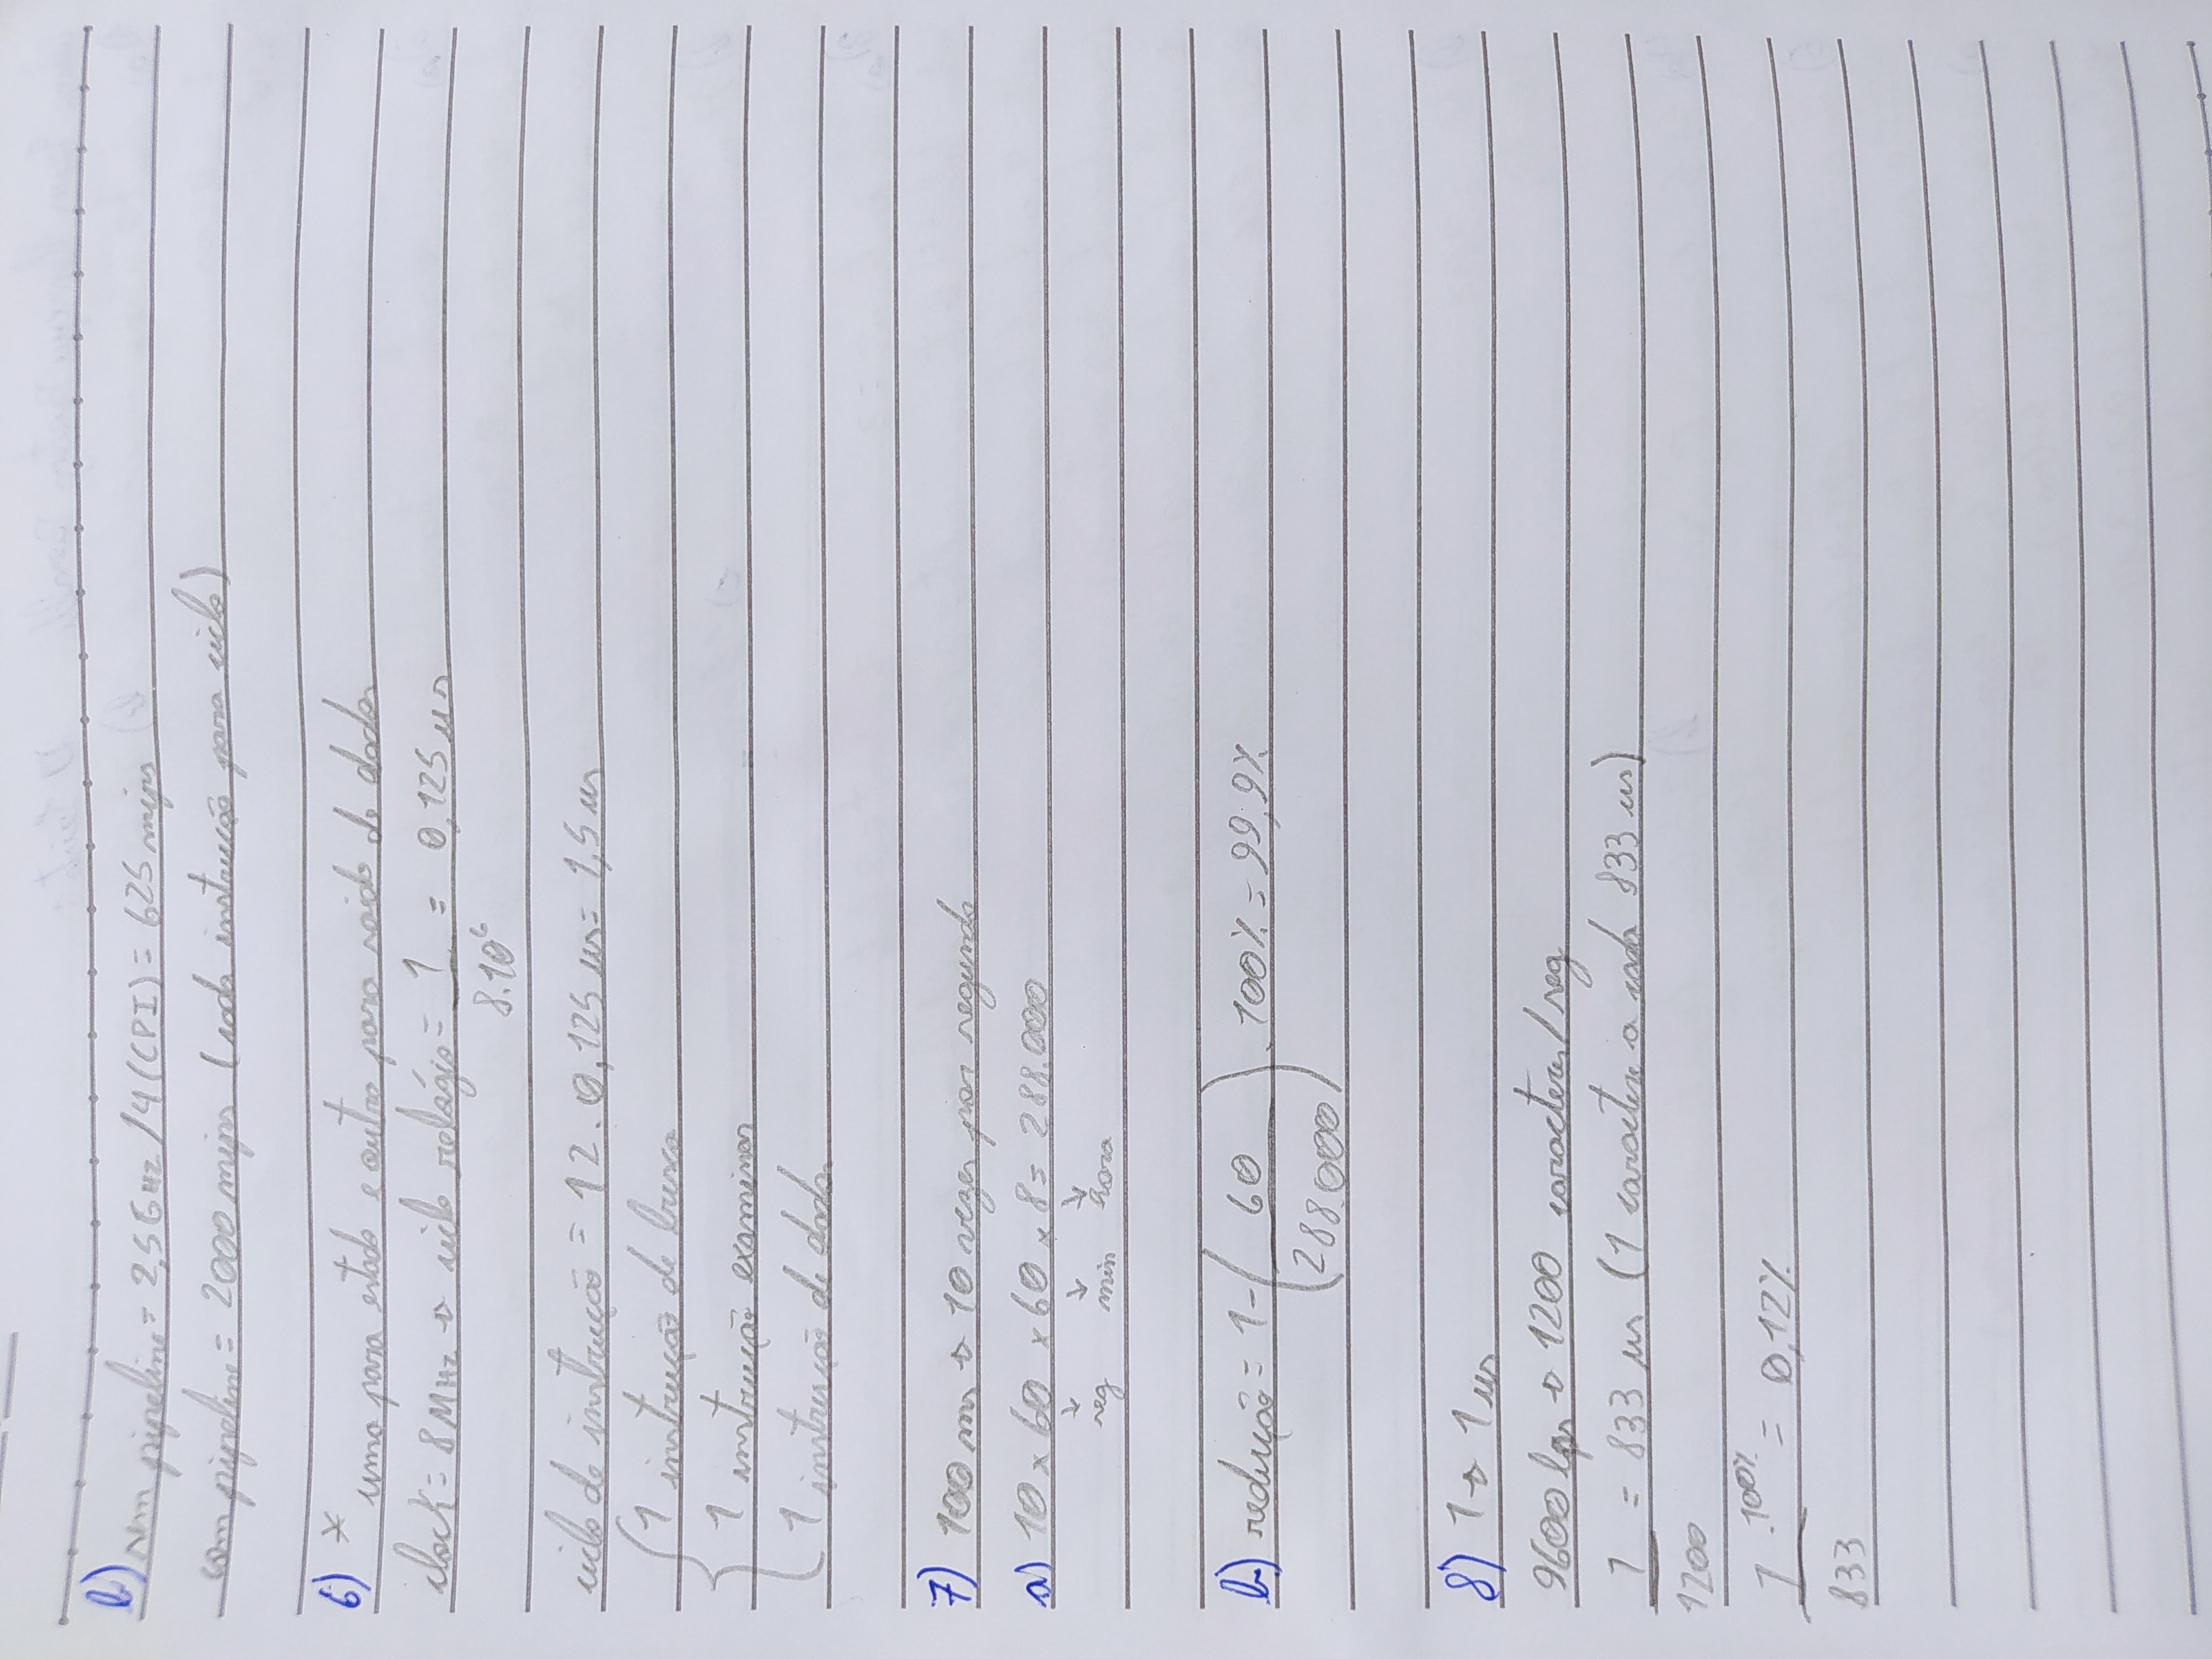 b) sem pipeline = 2,5 GHz / 4 (CPI) = 625 mips
com pipeline = 2000 mips (cada instrução para ciclo)
6) * uma para estado e outro para saida de dados
clock = 8 MHz → ciclo relógio = 1 / 8.10⁶ = 0,125 us
ciclo de instrução = 12 . 0,125 us = 1,5 us
1 instrução de busca
1 instrução examinar
1 instrução de dados
7) 100 ms → 10 vezes por segundo
a) 10 x 60 x 60 x 8 = 288.000
↓ ↓ ↓
seg min hora
b) redução = 1 - (60 / 288.000) . 100% = 99,9%
8) 1 → 1 us
9600 bps → 1200 caracteres/seg
1 / 1200 = 833 us (1 caractere a cada 833 us)
1 / 833 . 100% = 0,12%